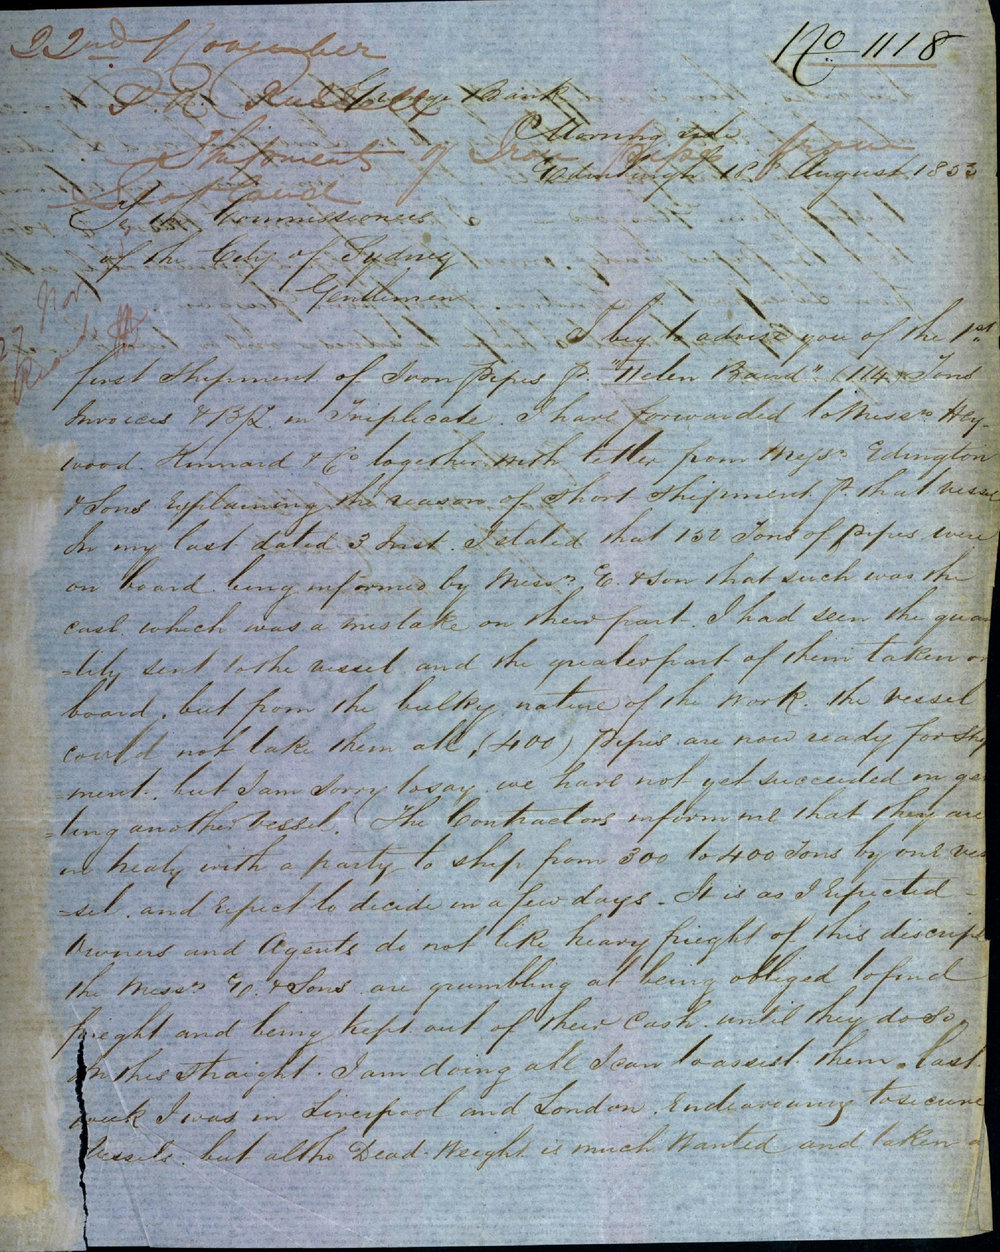 22nd November
No 1118
Bank
Morning side
Shipments of Iron Pipes from
Scotland
Edinburgh 18 August 1853
Commissioners
of the City of Sydney
Gentlemen
27 Nov
Read
I beg to advise you of the 1st
first Shipment of Iron Pipes P. "Helen Baird" (114 Tons
Invoices & B/L in Triplicate. I have forwarded to Messrs Hey-
wood Kinnard & Co together with letter from Messrs Edington
& Sons Explaining the reason of Short Shipment P. that vesse
In my last dated 3 Inst. I stated that 132 Tons of pipes were
on board being informed by Messrs E. & Son that such was the
case which was a mistake on their part. I had seen the quan
-tity sent to the vessel and the greater part of them taken on
board, but from the bulky nature of the Work. the vessel
could not take them all, (400) Pipes are now ready for ship
-ment, but I am Sorry to say we have not yet succeeded in get
-ting another vessel. (The Contractors inform me that they are
in treaty with a party to ship from 300 to 400 Tons by one ves
-sel, and Expect to decide in a few days - It is as I Expected -
Owners and Agents do not like heavy frieght of this discrip
the Messrs E. & Sons are grumbling at being obliged to find
frieght and being kept out of their Cash until they do so
In this straight. I am doing all I can to assist them. last
week I was in Liverpool and London Endeavouring to secure
Vessels, but altho Dead-Weight is much Wanted and taken a